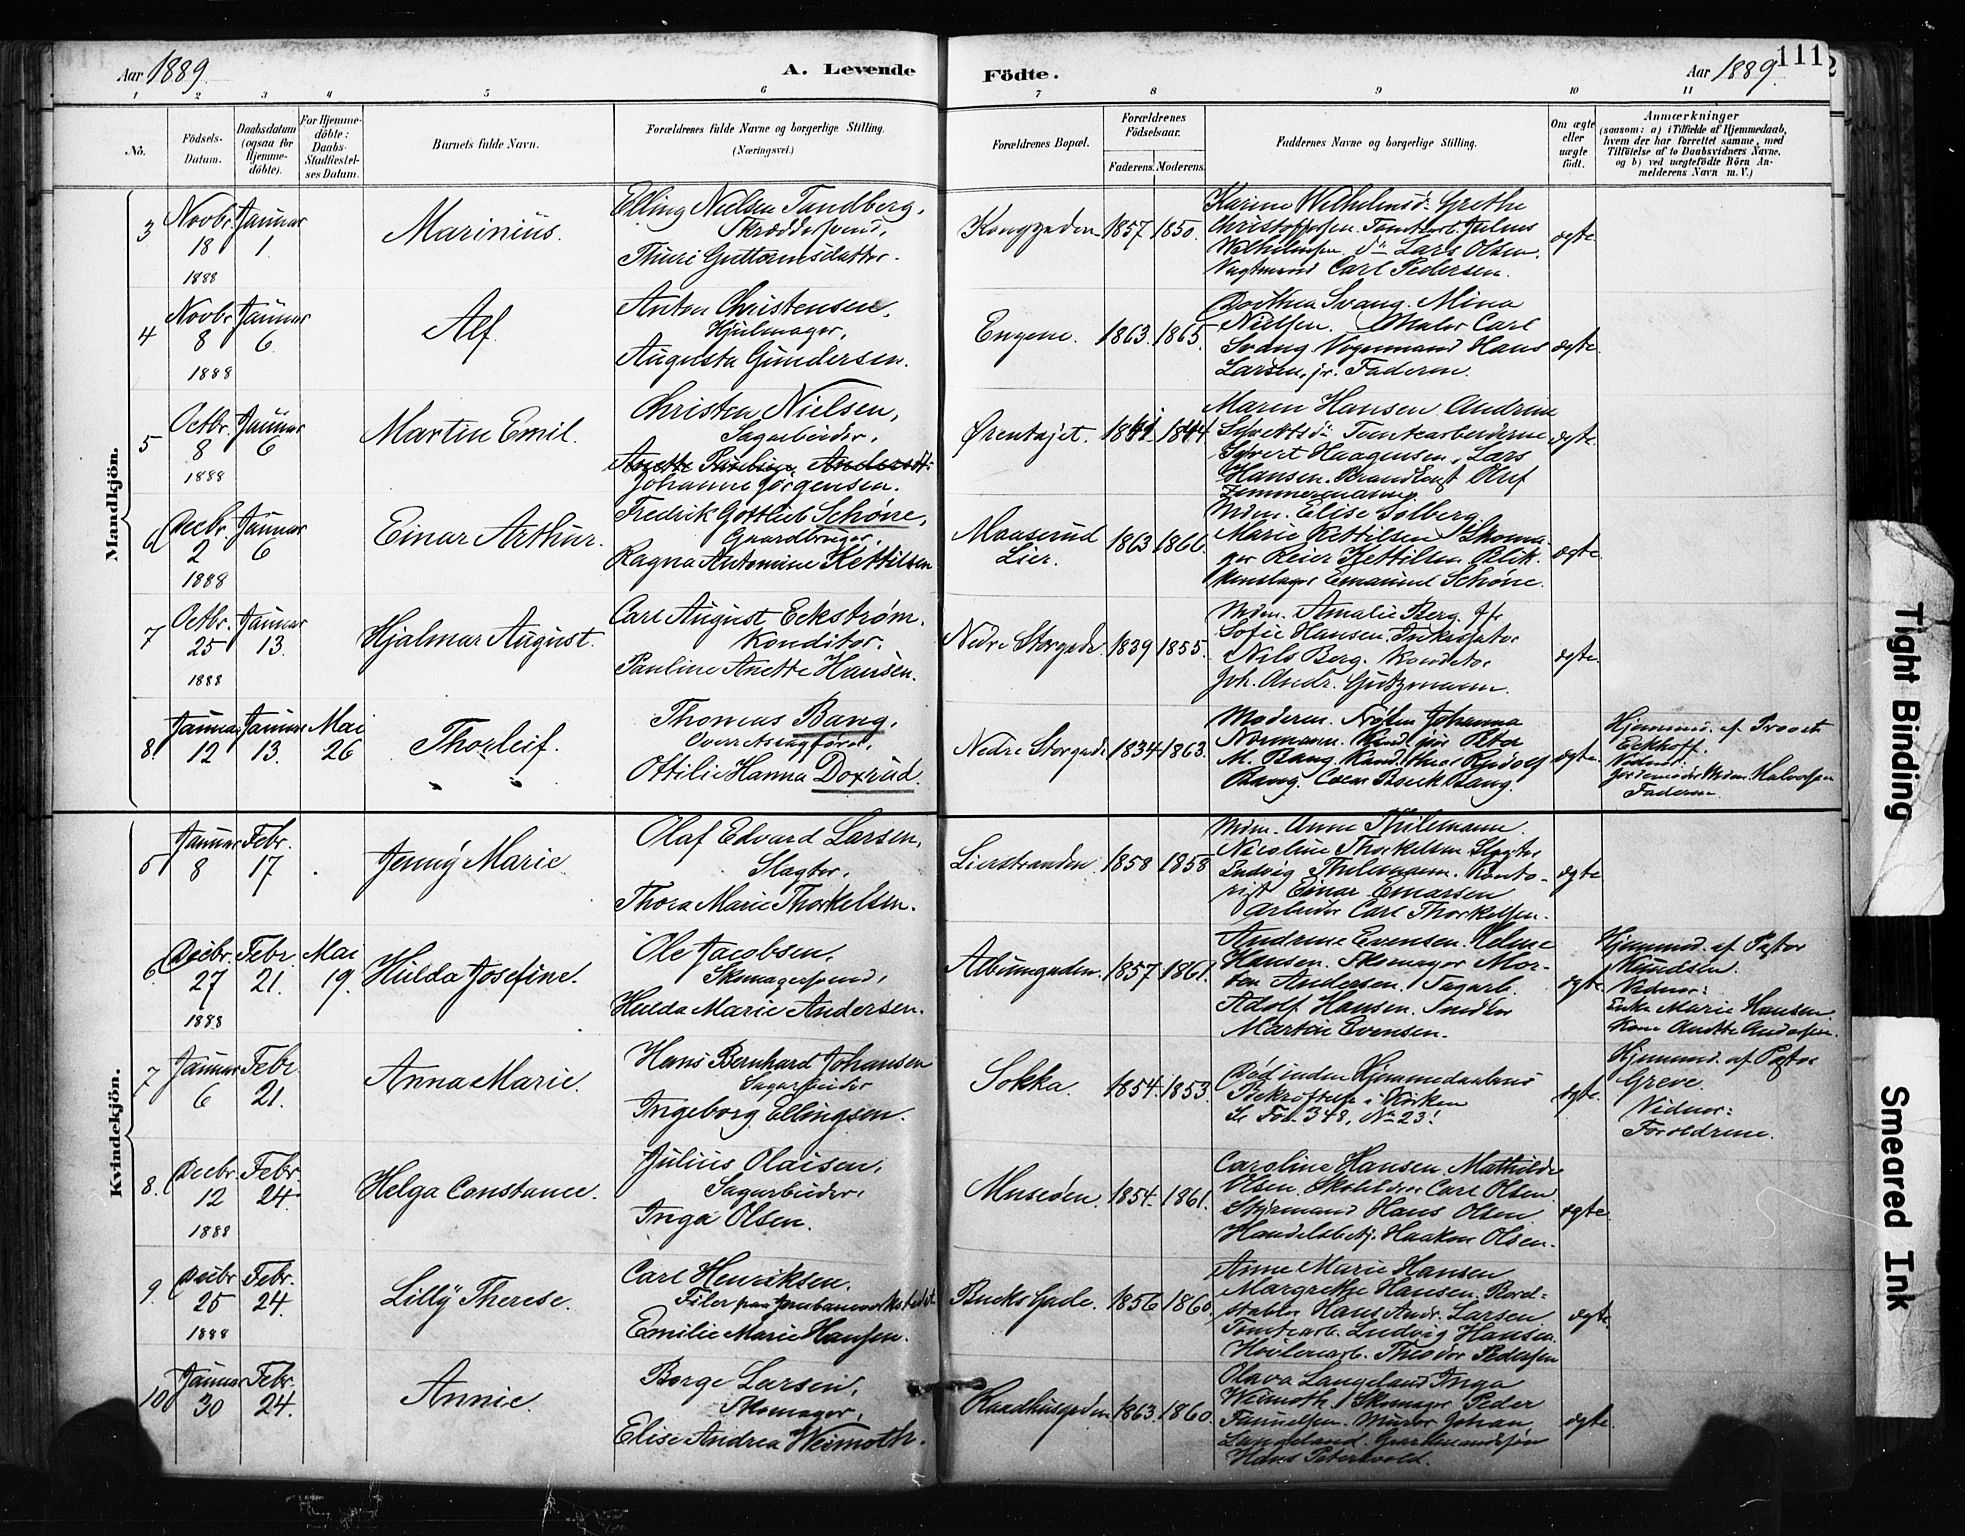 Aar 1889. A. Levende Födte. Aar 1889. 111
1 2 3 4 5 6 7 8 9 10 11
No.
Födsels-
Datum.
Daabsdatum
(ogsaa for
Hjemme-
döbte).
For Hjemme-
döbte:
Daabs-
Stadfæstel-
ses Datum.
Barnets fulde Navn.
Forældrenes fulde Navne og borgerlige Stilling.
(Næringsvei.)
Forældrenes Bopæl.
Forældrenes
Födselsaar.
Faderens. Moderens.
Faddernes Navne og borgerlige Stilling.
Om ægte
eller
uægte
födt.
Anmærkninger
(saasom: a) i Tilfælde af Hjemmedaab,
hvem der har forrettet samme, med
Tilföielse af to Daabsvidners Navne,
og b) ved uægtefödte Börn An-
melderens Navn m. V.)
Mandkjön.
3
Novbr.
18
1888
Januar
1.
Marinius.
Elling Nielsen Tandberg,
Skræddersvend,
Thuri Guttormsdatter.
Konggaden
1857 1850.
Karine Wilhelmsd. Grethe
Christoffersen. Tomtearb. Julius
Wilhelmsen do Lars Olsen.
Vagtmand Carl Pedersen.
ægte
4
Novbr.
8
1888
Januar
6
Alf.
Anton Christensen,
Hjulmager,
Augusta Gundersen.
Engene.
1863. 1865.
Dorthea Svang. Mina
Nielsen. Maler Carl
Svang Vognmand Hans
Larsen, jr. Faderen.
ægte.
5
Octbr.
8
1888
Januar
6
Martin Emil.
Christen Nielsen,
Sagarbeider,
Anette Andersdt.
Johanne Jörgensen.
Ørentajet.
1841. 1844
Maren Hansen Andrine
Tomtearbeiderne
Syvert Haagensen, Lars
Hansen. Olaf
Zimmermann.
ægte.
6
Decbr.
2
1888
Januar
6
Einar Arthur.
Fredrik Gottlieb Schöne,
Gaardbruger,
Ragna Antonine Kettilsen
Lier.
1863 1866.
Mdm. Elise Solberg.
Marie Kettilsen Skoma-
ger Reier Kettilsen Blik-
kenslager Emanuel Schöne.
ægte.
7
Octbr.
25
1888
Januar
13.
Hjalmar August.
Carl August Eckström.
Konditor.
Pauline Anette Hansen.
Nedre Storgade.
1839 1855.
Mdm. Amalie Berg. Fr.
Sofie Hansen. Inkassator
Nils Berg. Konditor
Joh. Andr. Gutzmann.
ægte.
8.
Januar
12
Januar
13.
Mai
26
Thorleif.
Thomas Bang,
Overretssagförer,
Ottilie Hanna Doxrud.
Nedre Storgade
1834 1863.
Moderen. Fröken Johanna
Normann. Kand. jur. Peter
M. Bang. Kand. theol Rudolf
Bang. Bang.
ægte.
Hjemmed. af Provst
Eckhoff.
Vidner:
Jordemoder Mdm. Halvorsen
Faderen.
Kvindekjön.
6
Januar
8
Febr.
17
Jenny Marie.
Olaf Edvard Larsen,
Slagter,
Thora Marie Thorkelsen.
Lierstranden
1858 1858
Mdm. Anne Thilemann.
Nicoline Thorkelsen Slagter
Ludvig Thilemann. Konto-
rist Einar Einarsen
Arbeider Carl Thorkelsen.
ægte
6.
Decbr.
27
1888
Febr.
21.
Mai
19.
Hulda Josefine.
Ole Jacobsen,
Skomagersvend,
Hulda Marie Andersen.
Albumgaden.
1857. 1861.
Andrine Evensen. Helene
Hansen. Skomager Mor-
ten Andersen. Sagarb.
Adolf Hansen. Smeden
Martin Evensen.
ægte
Hjemmed. af Pastor
Knudsen.
Vidner:
Enke Marie Hansen.
Kone Anette Andersen.
7
Januar
6
Febr.
21.
Anna Marie.
Hans Bernhard Johansen
Sagarbeider
Ingeborg Ellingsen.
Sokka.
1854. 1853.
Död inden Hjemmedaabens
Bekræftelse i Kirken
Se Fol. 348, No 23!
ægte.
Hjemmed. af Pastor
Greve.
Vidner:
Forældrene.
8.
Decbr.
12
1888
Febr.
24.
Helga Constance.
Julius Olaisen,
Sagarbeider,
Inga Olsen.
Museöen.
1854. 1861.
Caroline Hansen. Mathilde
Olsen. Carl Olsen.
Styrmand Hans Olsen
Handelsbetj. Haakon Olsen.
ægte.
9.
Decbr.
25
1888
Febr.
24.
Lilly Therese.
Carl Henriksen.
Filer paa Jernbaneverkstedet
Emilie Marie Hansen.
Bucks Gade.
1856 1860.
Anne Marie Hansen
Margrethe Hansen. Bord-
stabler Hans Andr. Larsen
Tomtearb. Ludvig Hansen.
Hövleriarb. Theodor Pedersen
ægte.
10
Januar
30
Febr.
24.
Annie.
Borge Larsen,
Skomager,
Elise Andrea Weimoth.
Raadhusgaden
1863. 1860.
Olava Langeland Inga
Weimoth. Skomager Peder
Murer Johan
Langeland. Gaardmandssön
Hans Petersvold.
ægte.
Tight Binding
Smeared Ink